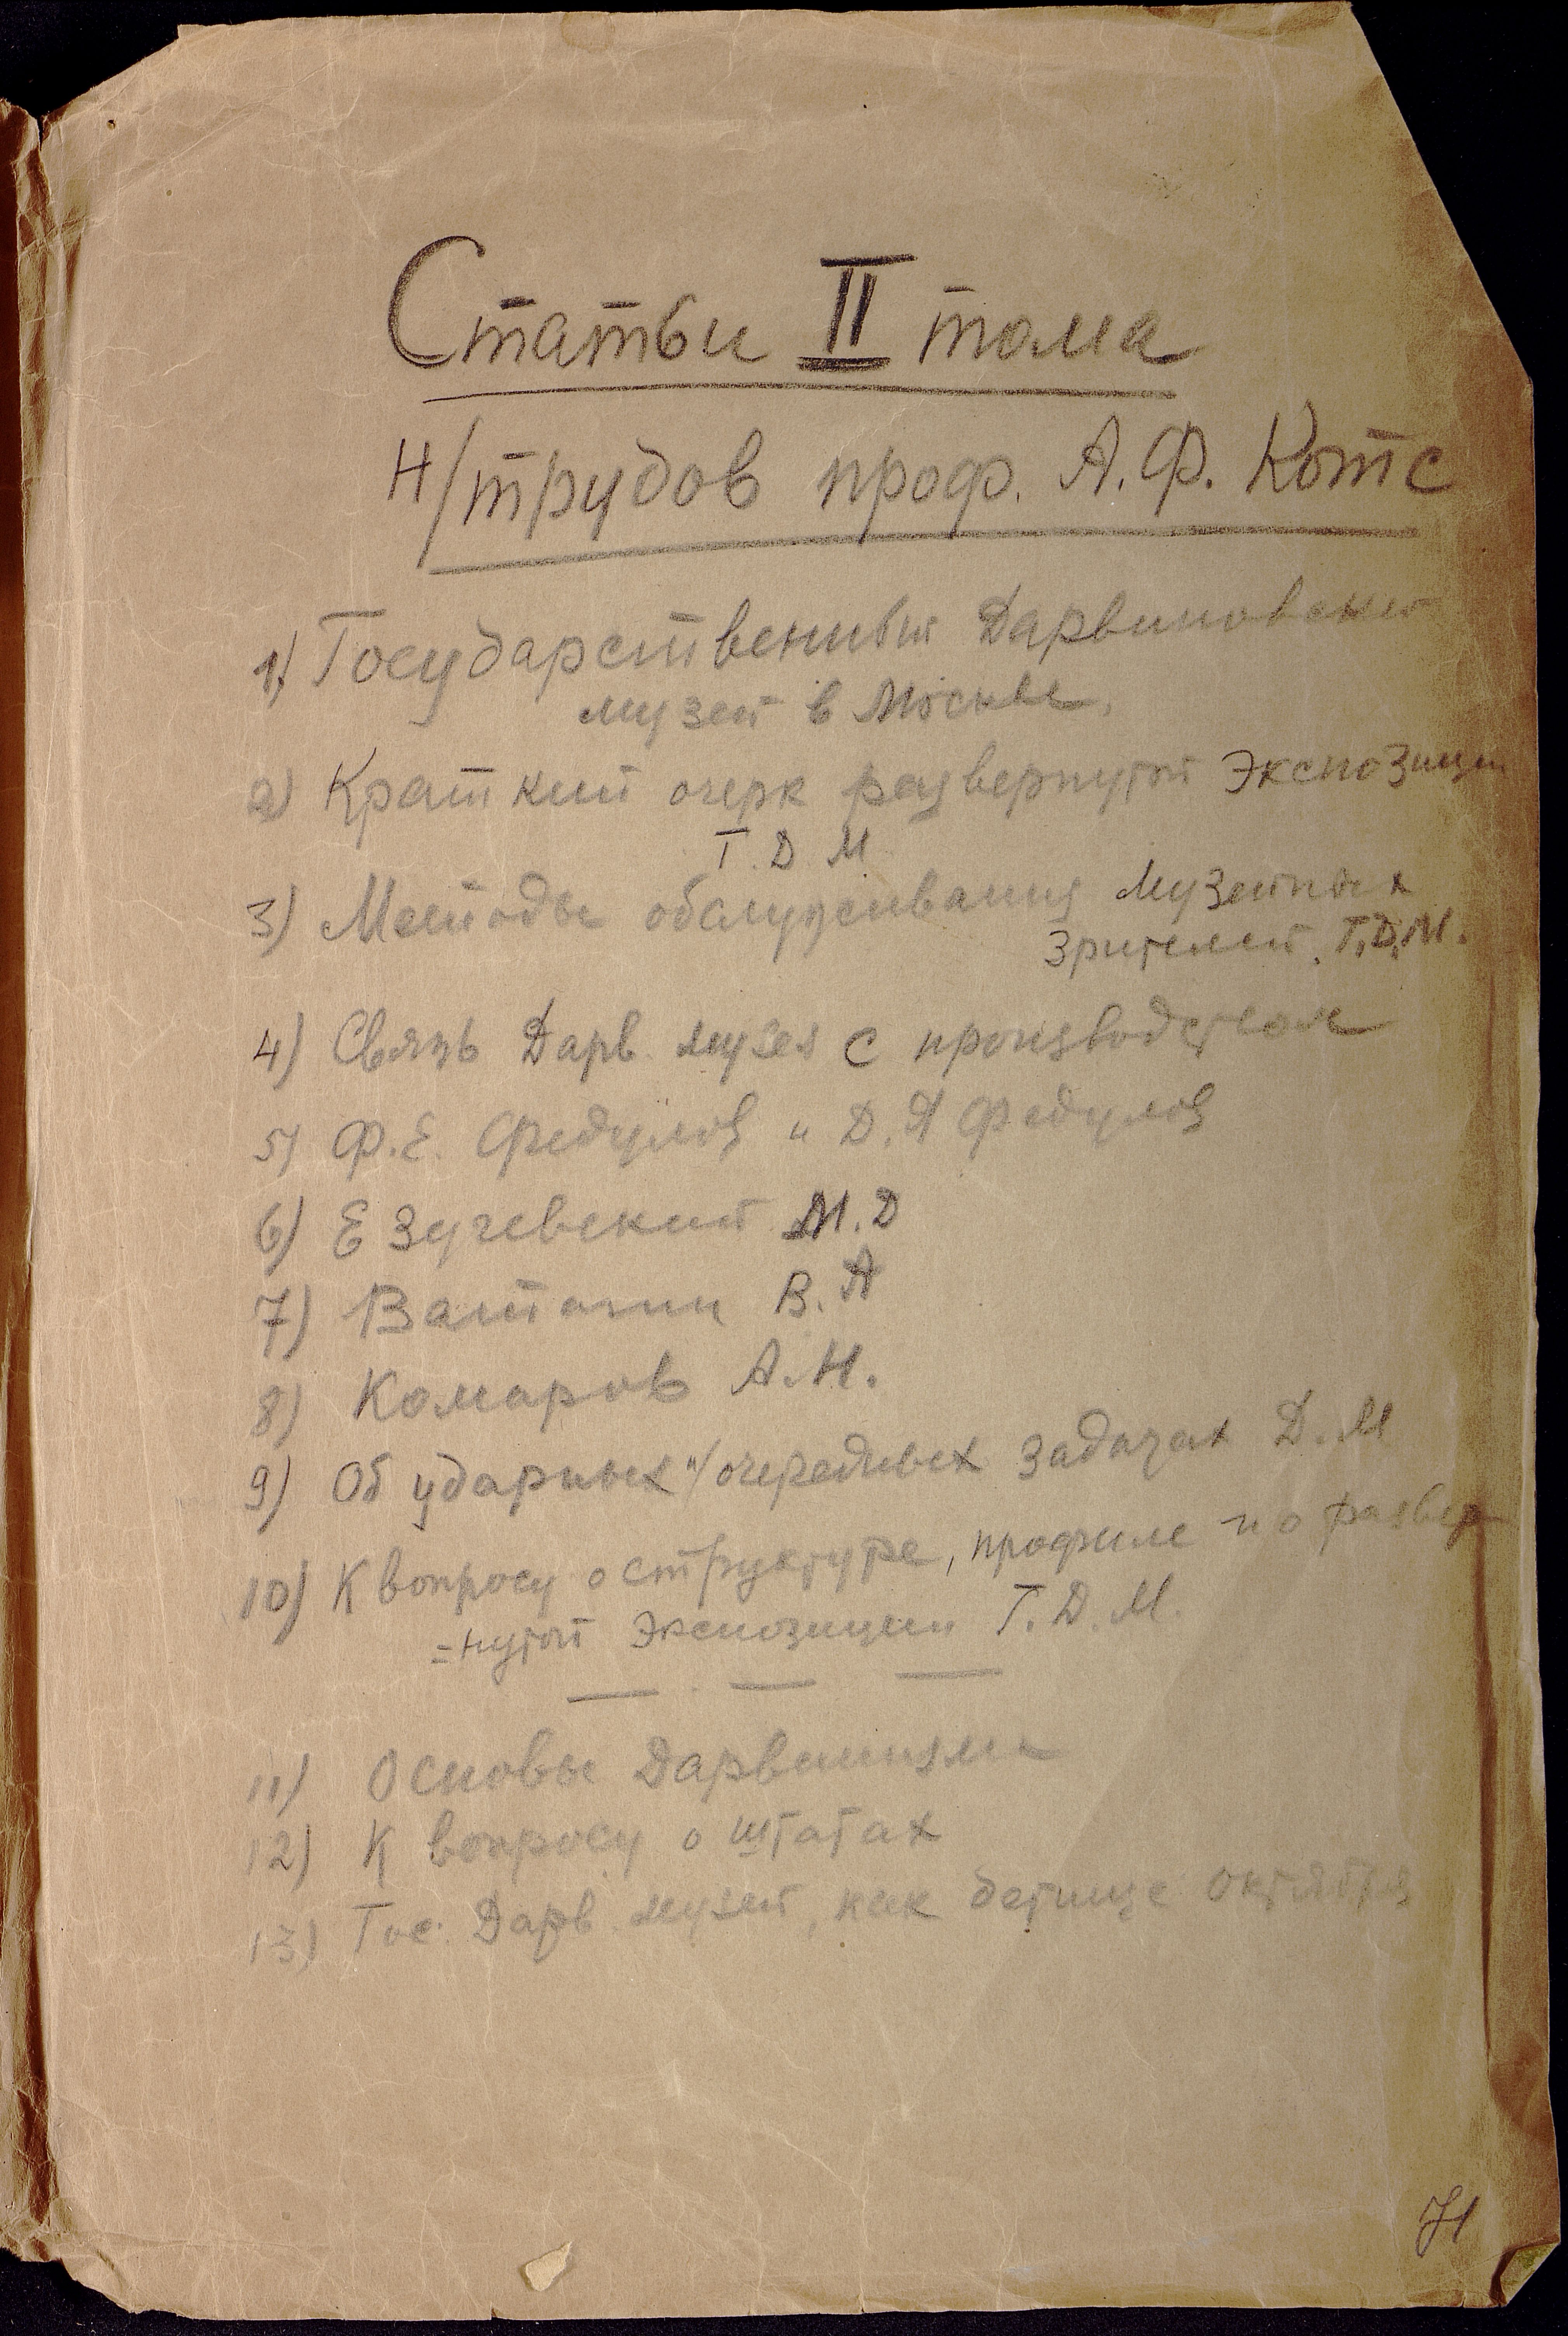 Статьи II тома
Н/трудов проф. А.Ф. Котс
1) Государственный Дарвиновский
музей в Москве.
2) Краткий очерк развернутой Экспозиции
Т.Д.М
3) Методы обслуживания Музейных
Зрителей. Т.Д.М.
4) Связь Дарв. музея с производством
5) Ф.Е. Федулов и Д.Я Федулов
6) Езучевский М.Д
7) Ватагин В.А
8) Комаров А.Н.
9) Об ударных и/очередных задачах Д.М
10) К вопросу о структуре, профиле и о развер
=нутой Экспозиции Т.Д.М.
11) Основы Дарвинизма
12) К вопросу о штатах
13) Гос. Дарв. музей, как детище Октября
71